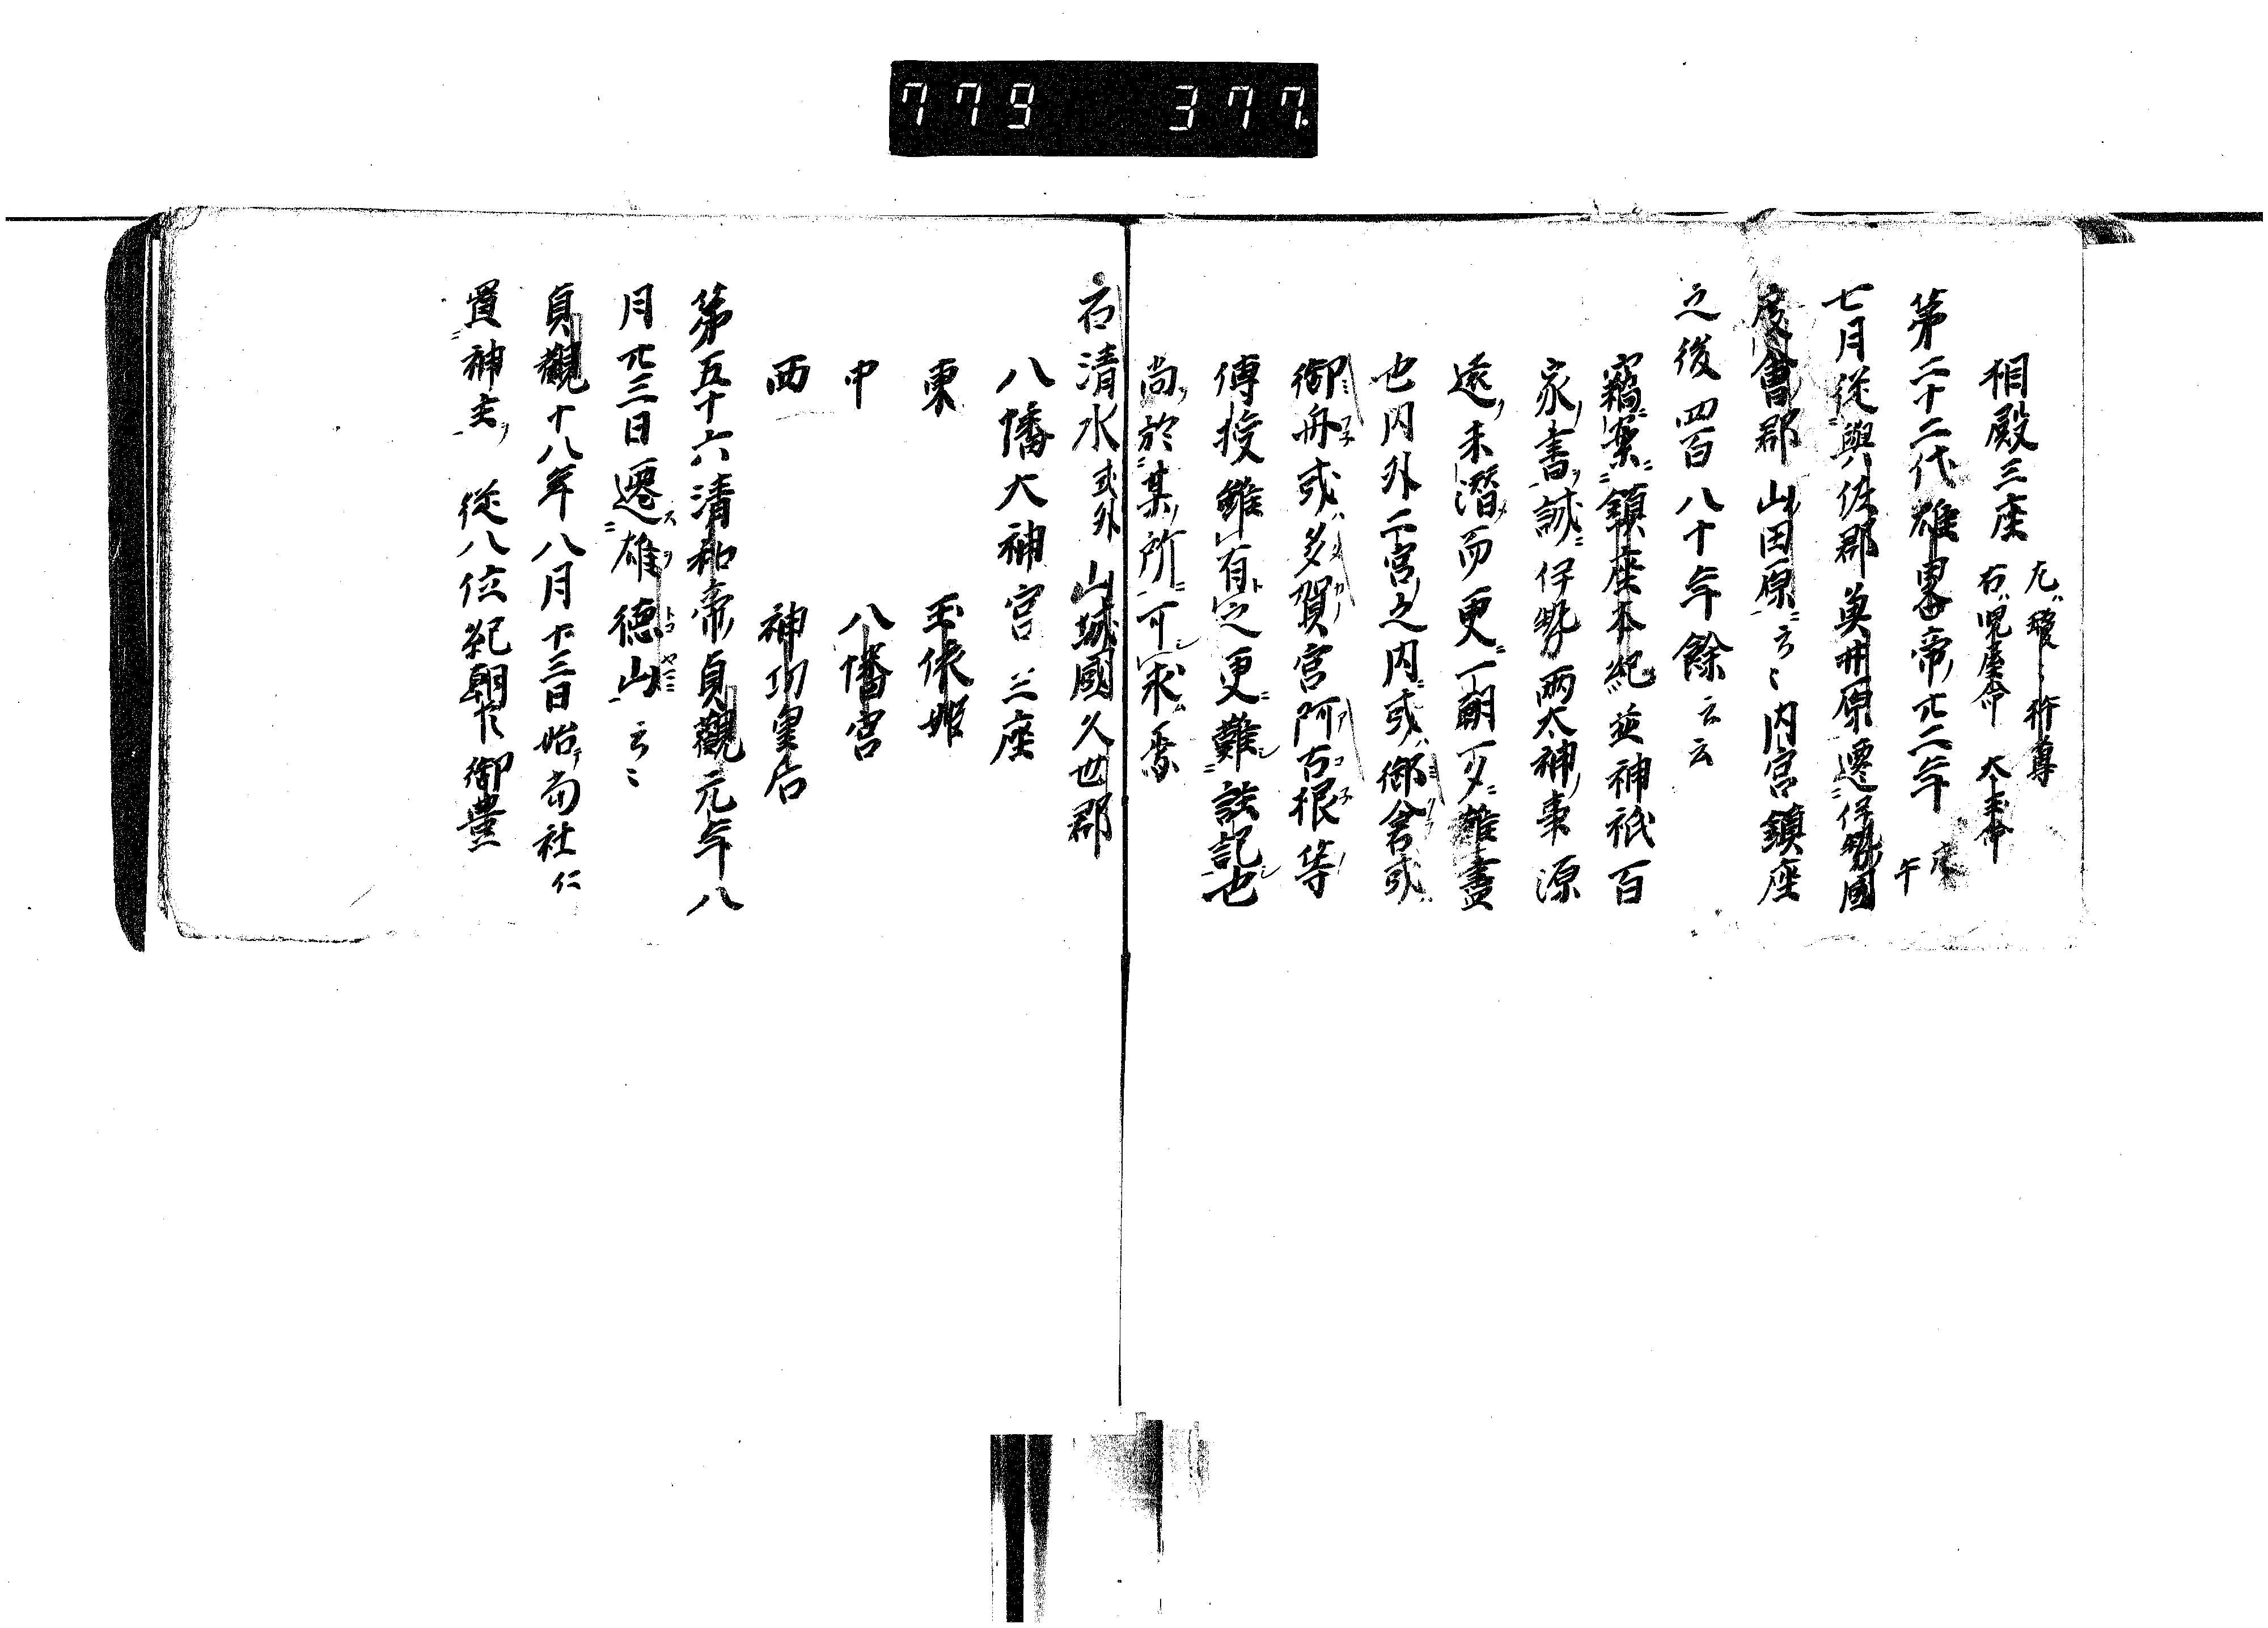 779 377.
相殿三座 左瓊〻杵尊 右児屋命 太玉命
第二十二代雄畧帝廿二年
七月従與佐郡真井原遷伊勢國
度會郡山田原云〻内宮鎮座
之後四百八十年餘云云
竊案鎮座本紀並神祇百
家書誠伊勢両太神事源
遂未潜而更一朝一夕難盡
也内外二宮之内或御倉或
御舟或多賀宮阿古根等
傳授雖有之更難註記也
尚於某所可求焉
石清水 或外 山城國久世郡
八幡大神宮 三座
東 玉依姫
中 八幡宮
西 神功皇后
第五十六清和帝貞觀元年八
月廿三日遷雄徳山云〻
貞觀十八年八月十三日始而社仁
置神主従八位紀朝臣御豊